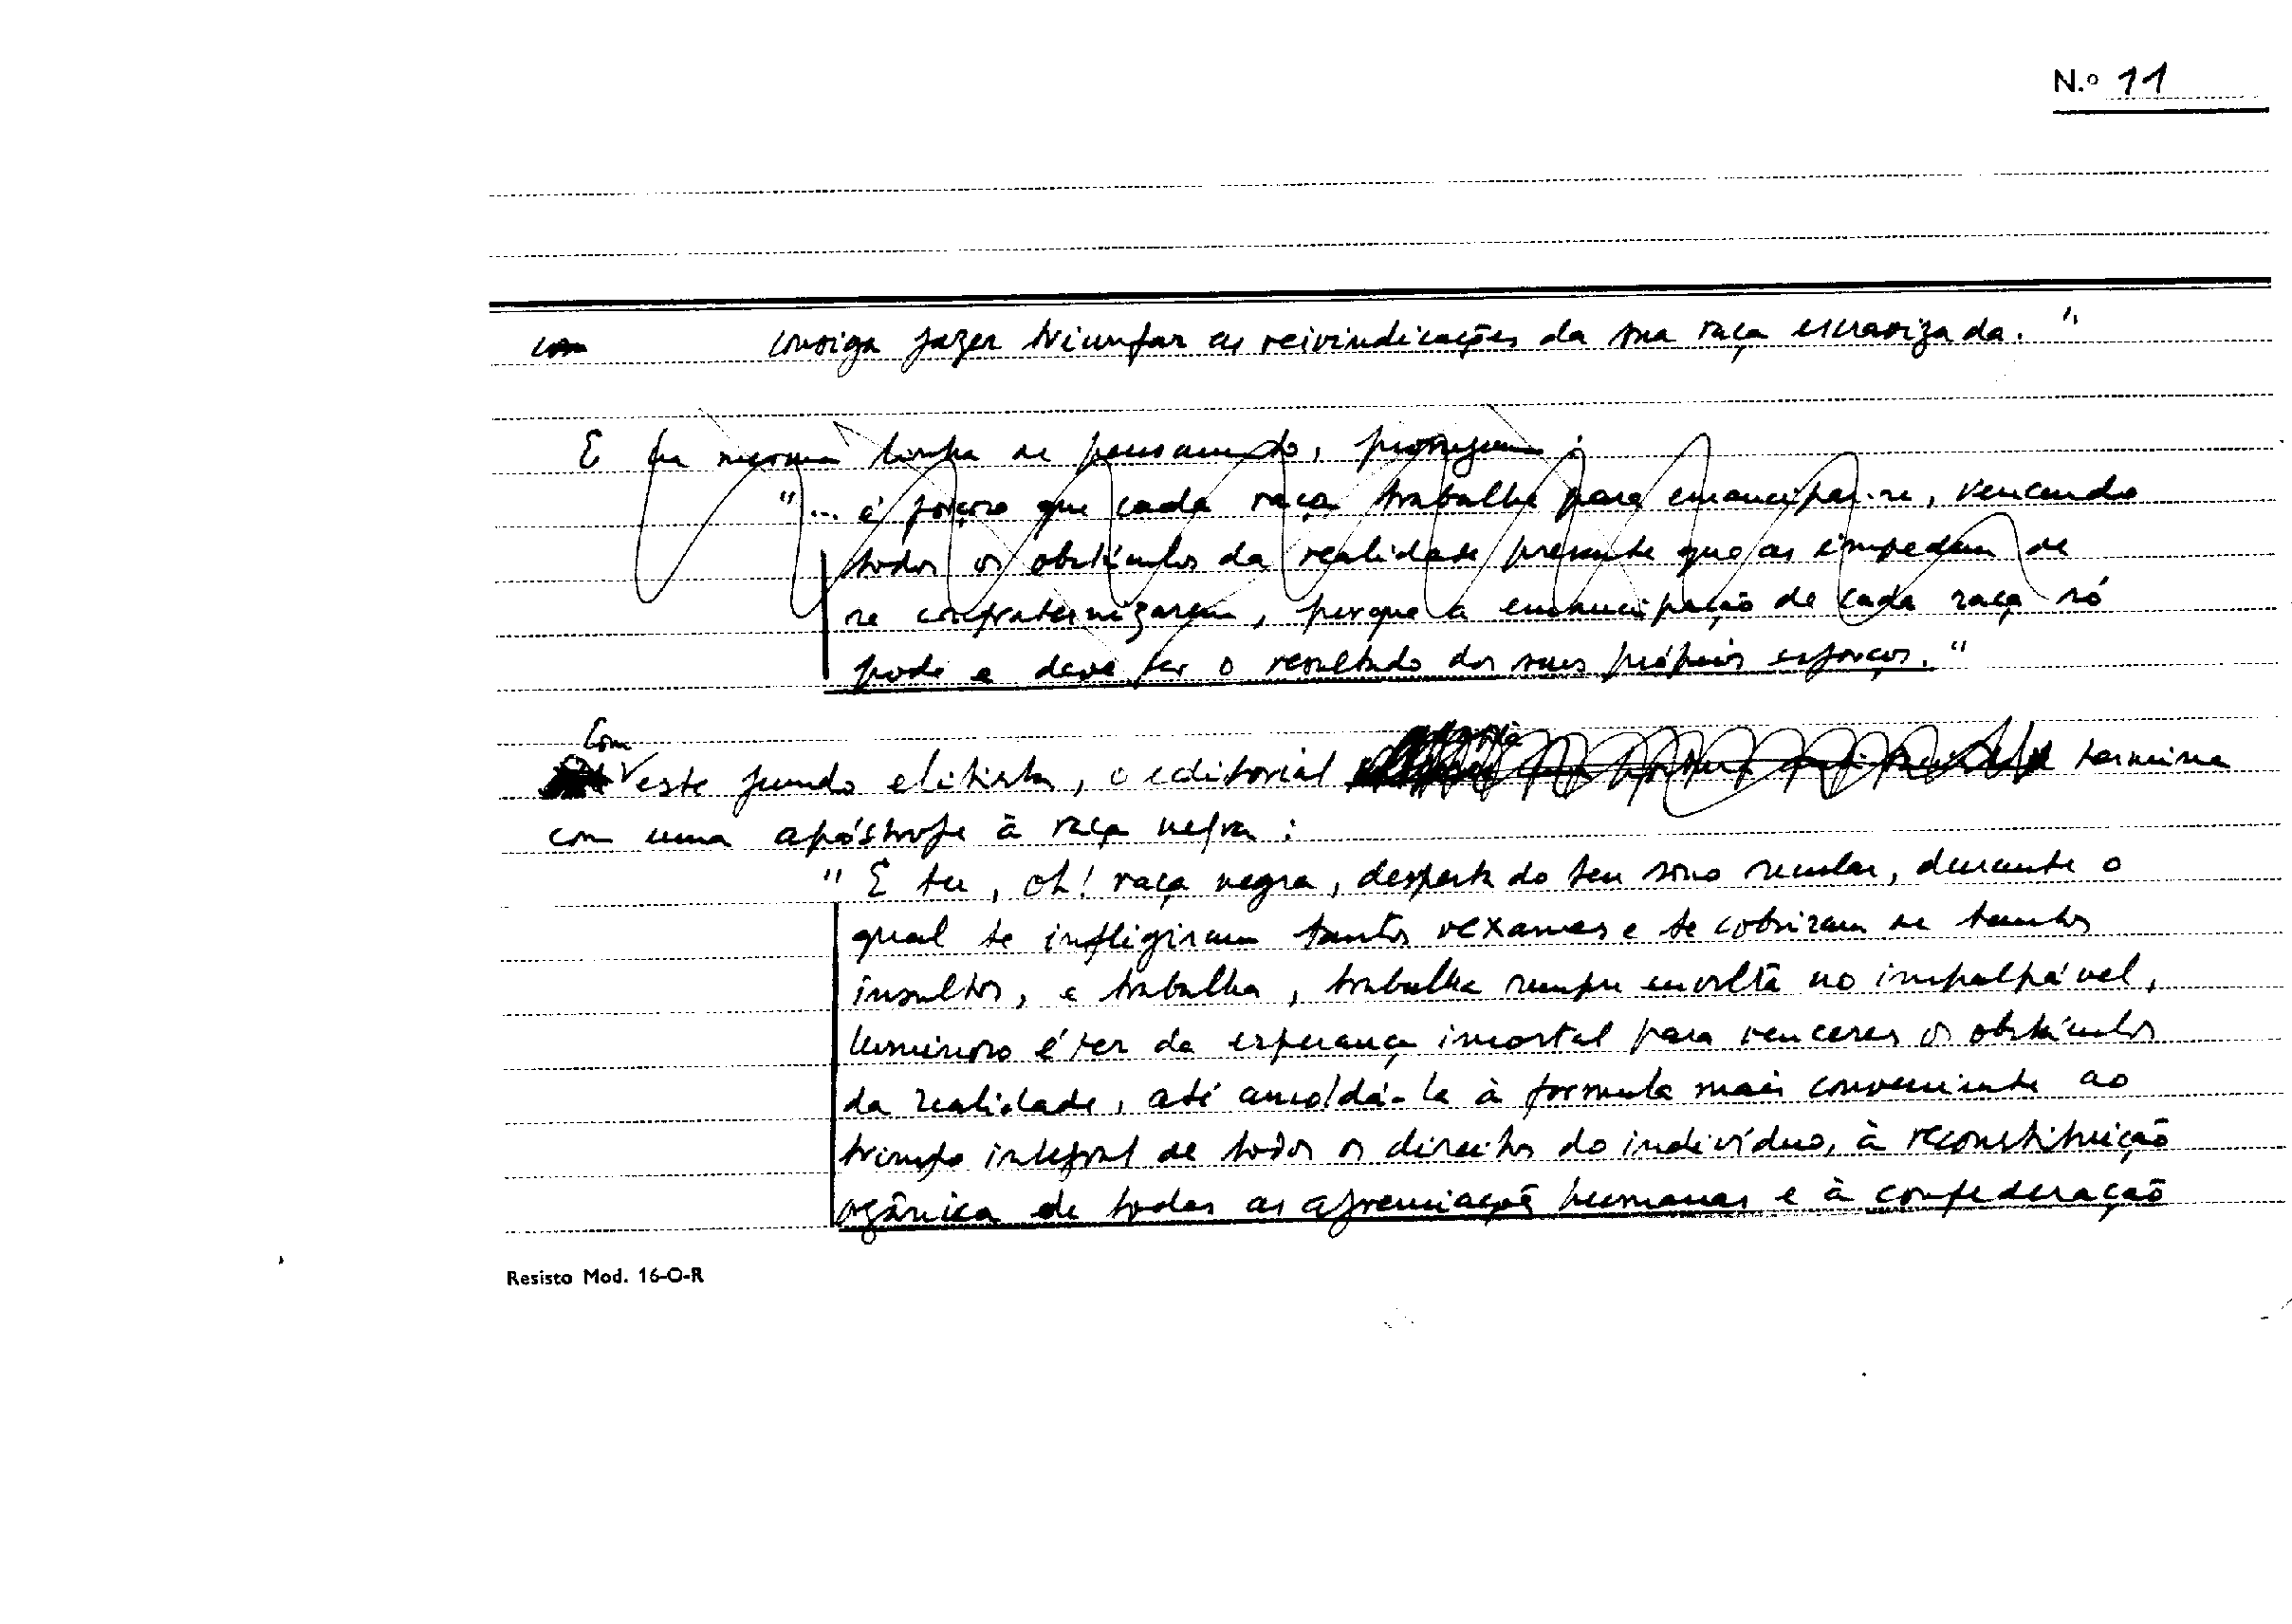 N.º 11
consiga fazer triunfar as reivindicações da sua raça escravizada."
E na mesma linha de pensamento, prosseguem:
"... é forçoso que cada raça trabalhe para emancipar-se, vencendo
todos os obstáculos da realidade presente que as impedem de
se confraternizarem, porque a emancipação de cada raça só
pode e deve ser o resultado dos seus próprios esforços."
Com
este fundo elitista, o editorial termina
com uma apóstrofe à raça negra:
"E tu, oh! raça negra, desperta do teu sono secular, durante o
qual te infligiram tantos vexames e te cobriram de tantos
insultos, e trabalha, trabalha sempre envolta no impalpável,
luminoso éter da esperança imortal para venceres os obstáculos
da realidade, até amoldá-la à formula mais conveniente ao
triunfo integral de todos os direitos do indivíduo, à reconstituição
orgânica de todas as agremiações humanas e à confederação
Resisto Mod. 16-O-R